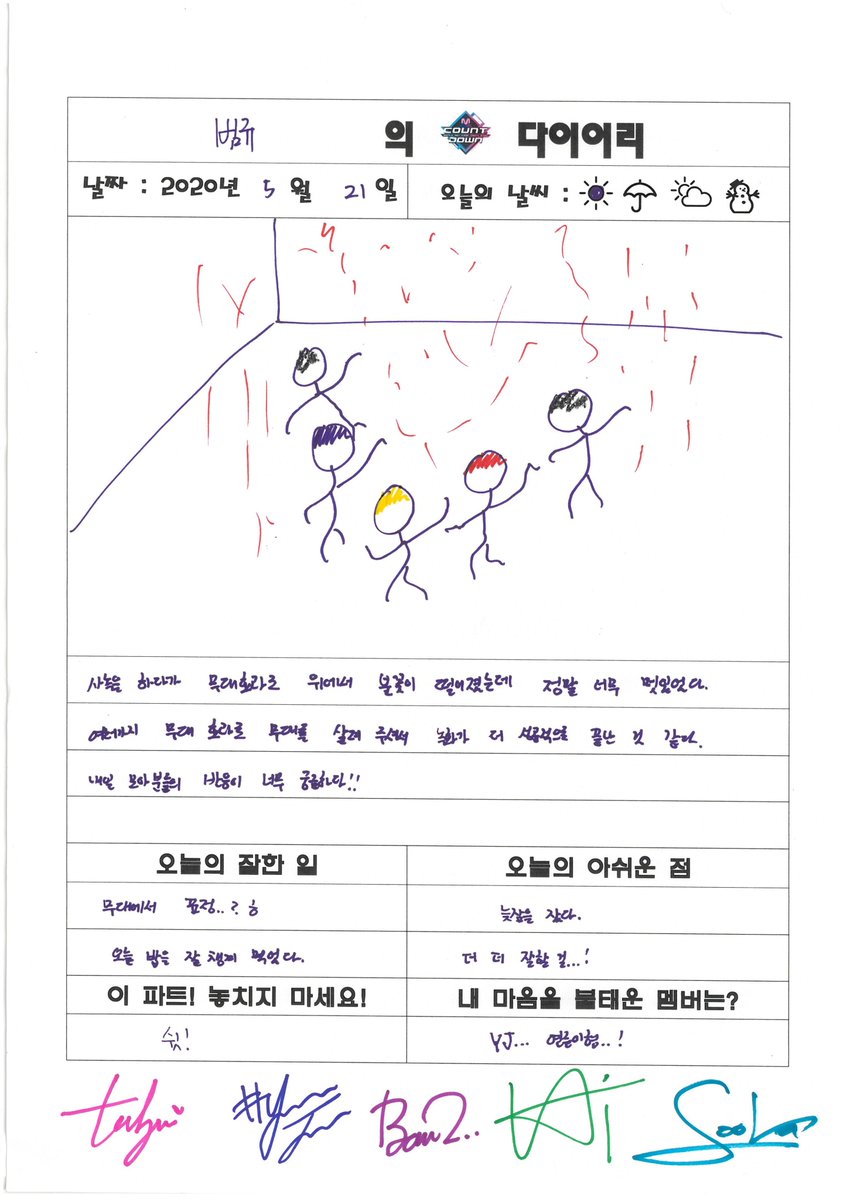 범규 의 M COUNT DOWN 다이어리
날짜 : 2020년 5 월 21 일 오늘의 날씨 :
사녹을 하다가 무대효과로 위에서 불꽃이 떨어졌는데 정말 너무 멋있었다.
여러가지 무대 효과로 무대를 살려 주셔서 녹화가 더 성공적으로 끝난 것 같다.
내일 모아분들의 반응이 너무 궁금하단!!
오늘의 잘한 일 오늘의 아쉬운 점
무대에서 표정..? ㅎ 늦잠을 잤다.
오늘 밥을 잘 챙겨 먹었다. 더 더 잘할 걸...!
이 파트! 놓치지 마세요! 내 마음을 불태운 멤버는?
쉿! YJ... 연준이형..!